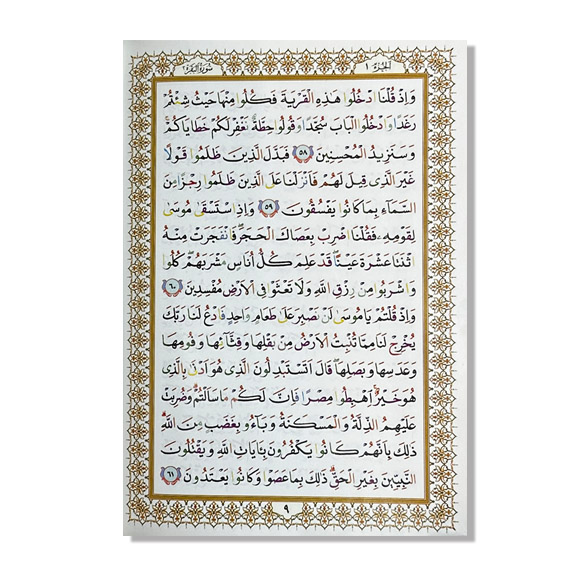 الجزء ١
سورة البقرة ٢
وَإِذْ قُلْنَا ادْخُلُوا هَٰذِهِ الْقَرْيَةَ فَكُلُوا مِنْهَا حَيْثُ شِئْتُمْ
رَغَدًا وَادْخُلُوا الْبَابَ سُجَّدًا وَقُولُوا حِطَّةٌ نَغْفِرْ لَكُمْ خَطَايَاكُمْ
وَسَنَزِيدُ الْمُحْسِنِينَ ٥٨ فَبَدَّلَ الَّذِينَ ظَلَمُوا قَوْلًا
غَيْرَ الَّذِي قِيلَ لَهُمْ فَأَنْزَلْنَا عَلَى الَّذِينَ ظَلَمُوا رِجْزًا مِنَ
السَّمَاءِ بِمَا كَانُوا يَفْسُقُونَ ٥٩ وَإِذِ اسْتَسْقَىٰ مُوسَىٰ
لِقَوْمِهِ فَقُلْنَا اضْرِبْ بِعَصَاكَ الْحَجَرَ فَانْفَجَرَتْ مِنْهُ
اثْنَتَا عَشْرَةَ عَيْنًا قَدْ عَلِمَ كُلُّ أُنَاسٍ مَشْرَبَهُمْ كُلُوا
وَاشْرَبُوا مِنْ رِزْقِ اللَّهِ وَلَا تَعْثَوْا فِي الْأَرْضِ مُفْسِدِينَ ٦٠
وَإِذْ قُلْتُمْ يَا مُوسَىٰ لَنْ نَصْبِرَ عَلَىٰ طَعَامٍ وَاحِدٍ فَادْعُ لَنَا رَبَّكَ
يُخْرِجْ لَنَا مِمَّا تُنْبِتُ الْأَرْضُ مِنْ بَقْلِهَا وَقِثَّائِهَا وَفُومِهَا
وَعَدَسِهَا وَبَصَلِهَا قَالَ أَتَسْتَبْدِلُونَ الَّذِي هُوَ أَدْنَىٰ بِالَّذِي
هُوَ خَيْرٌ اهْبِطُوا مِصْرًا فَإِنَّ لَكُمْ مَا سَأَلْتُمْ وَضُرِبَتْ
عَلَيْهِمُ الذِّلَّةُ وَالْمَسْكَنَةُ وَبَاءُوا بِغَضَبٍ مِنَ اللَّهِ
ذَٰلِكَ بِأَنَّهُمْ كَانُوا يَكْفُرُونَ بِآيَاتِ اللَّهِ وَيَقْتُلُونَ
النَّبِيِّينَ بِغَيْرِ الْحَقِّ ذَٰلِكَ بِمَا عَصَوْا وَكَانُوا يَعْتَدُونَ ٦١
٩